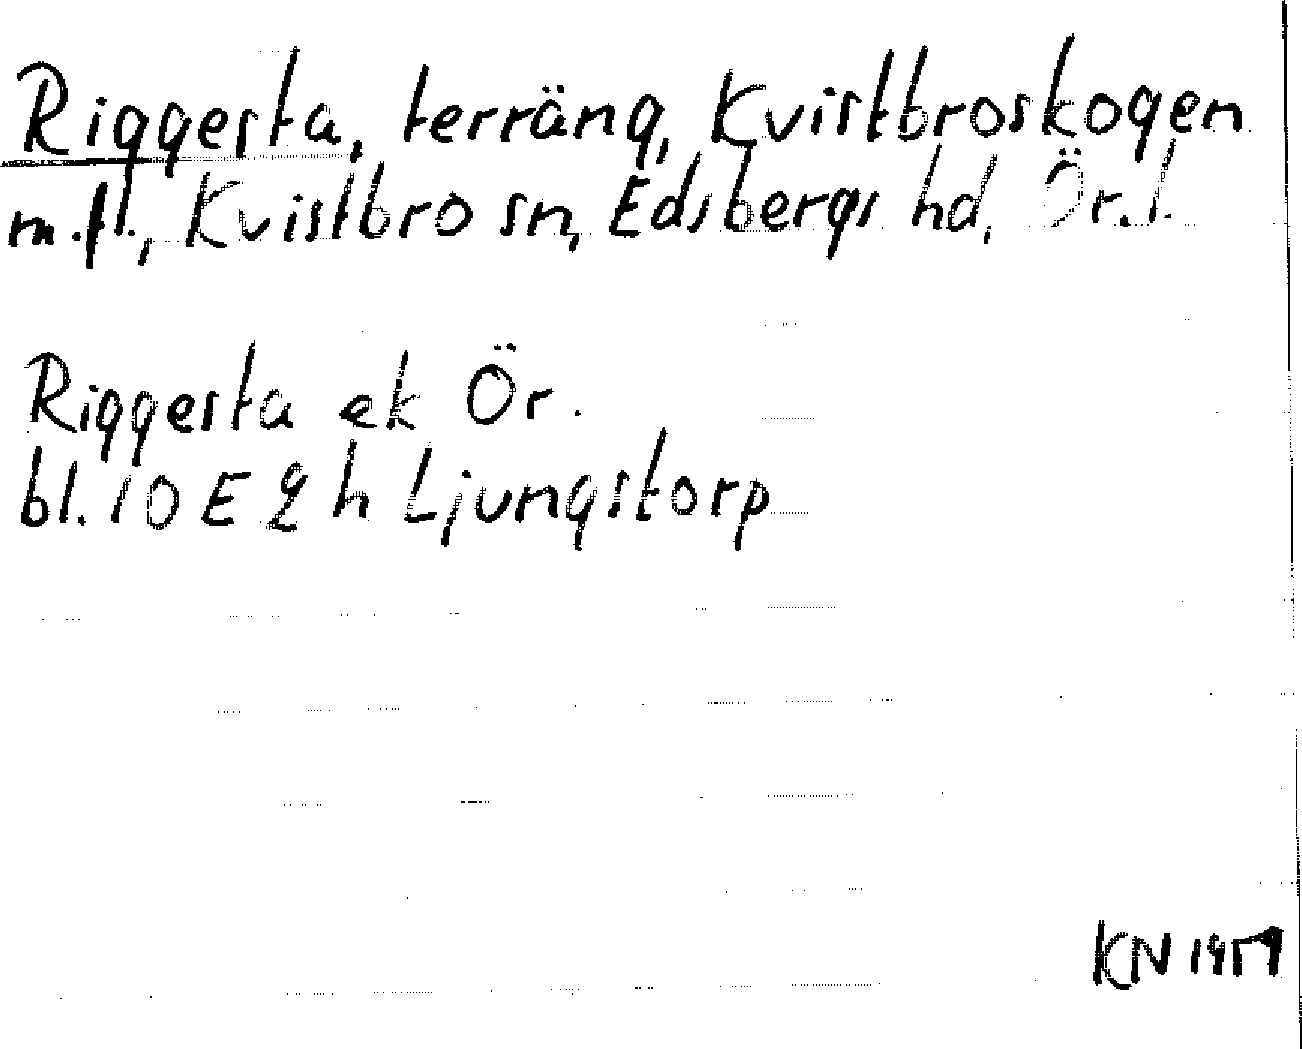 Riggesta, terräng, Kvistbroskogen
m.fl., Kvistbro sn, Edsbergs hd, Ör.l.
Riggesta ek Ör.
bl. 10 E 2 h Ljungstorp
KN 1959